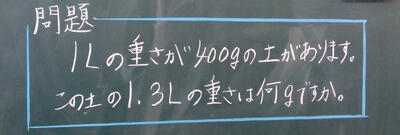 問題
1Lの重さが400gの土があります。
この土の1.3Lの重さは何gですか。